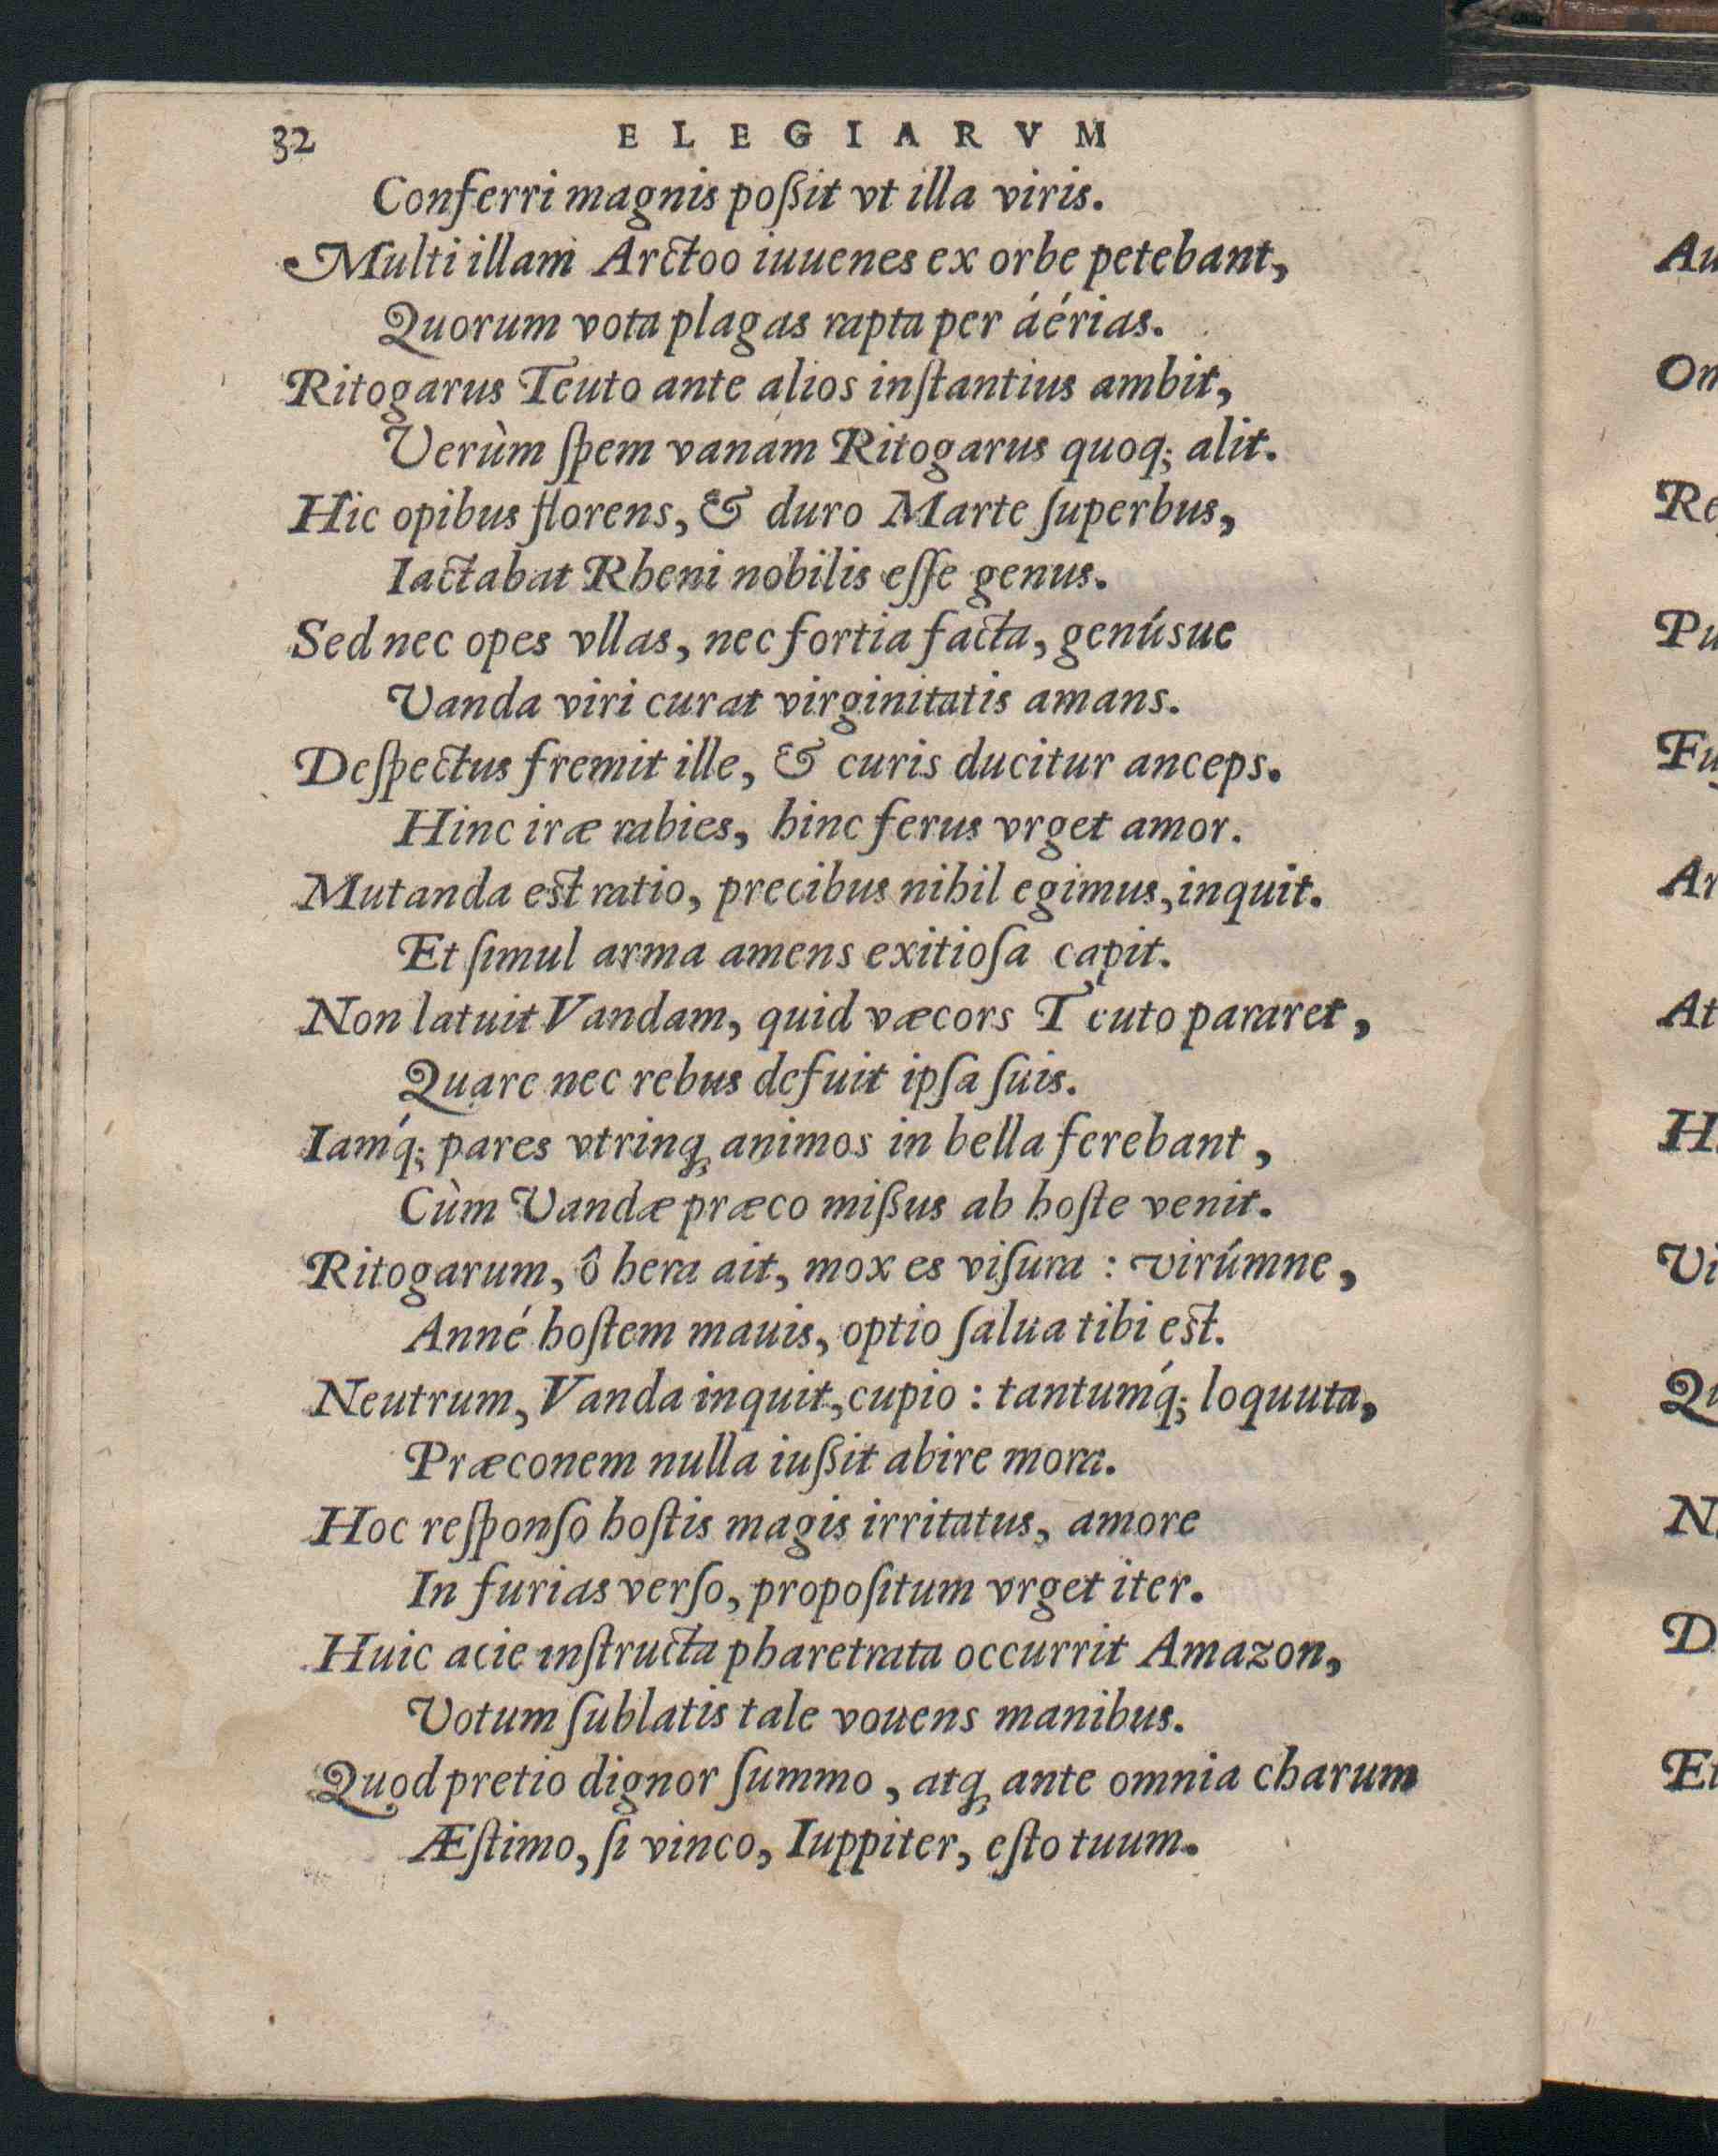 32 ELEGIARVM
Conferri magnis poßit vt illa viris.
Multi illam Arctoo iuuenes ex orbe petebant,
Quorum vota plagas rapta per áérias.
Ritogarus Teuto ante alios inſtantius ambit,
Verùm ſpem vanam Ritogarus quoq; alit.
Hic opibus florens, & duro Marte ſuperbus,
Iactabat Rheni nobilis eſſe genus.
Sed nec opes vllas, nec fortia facta, genúsue
Vanda viri curat virginitatis amans.
Deſpectus fremit ille, & curis ducitur anceps.
Hinc iræ rabies, hinc ferus vrget amor.
Mutanda est ratio, precibus nihil egimus, inquit.
Et ſimul arma amens exitioſa capit.
Non latuit Vandam, quid væcors Teuto pararet,
Quare nec rebus defuit ipſa ſuis.
Iamq́; pares vtrinq; animos in bella ferebant,
Cùm Vandæ præco mißus ab hoſte venit.
Ritogarum, ô hera ait, mox es viſura : virúmne,
Anné hoſtem mauis, optio ſalua tibi est.
Neutrum, Vanda inquit, cupio : tantumq́; loquuta,
Præconem nulla iußit abire mora.
Hoc reſponſo hoſtis magis irritatus, amore
In furias verſo, propoſitum vrget iter.
Huic acie inſtructa pharetrata occurrit Amazon,
Votum ſublatis tale vouens manibus.
Quod pretio dignor ſummo, atq; ante omnia charum
Æſtimo, ſi vinco, Iuppiter, eſto tuum.
Au
On
Re
Pu
Fu
Ar
At
H
Vi
Qu
N
D
Et